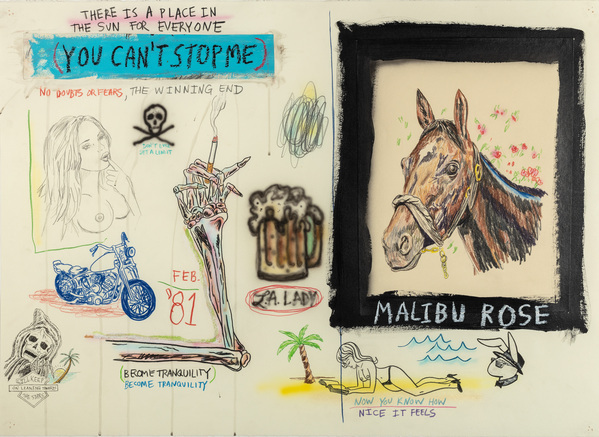 THERE IS A PLACE IN
THE SUN FOR EVERYONE
(YOU CAN'T STOP ME)
NO DOUBTS OR FEARS, THE WINNING END
FEB.
'81
L.A. LADY
MALIBU ROSE
(BECOME TRANQUILITY)
BECOME TRANQUILITY
NOW YOU KNOW HOW
NICE IT FEELS